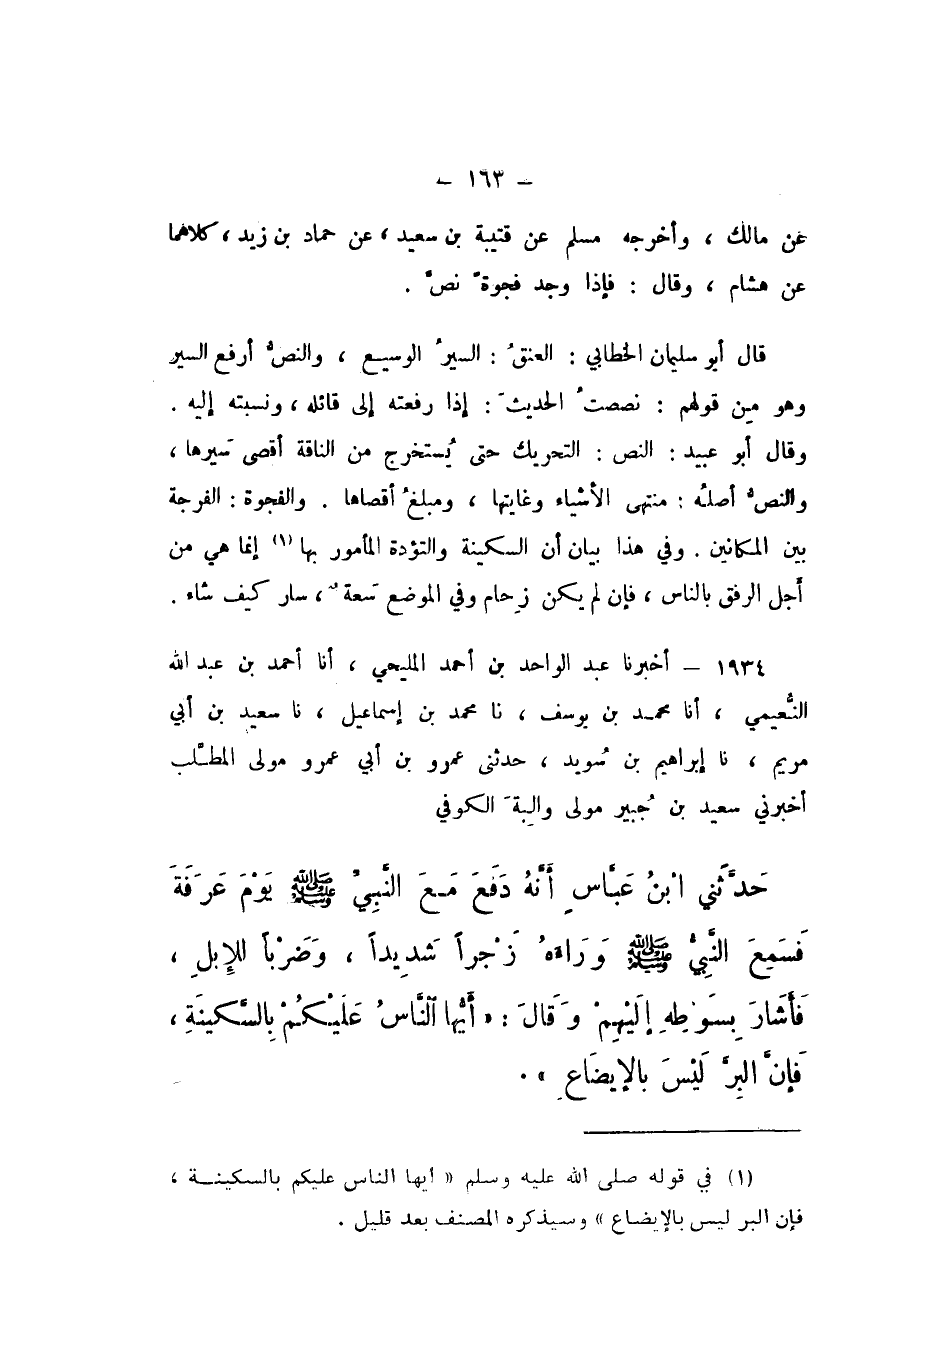 – ١٦٣ –
عن مالك ، وأخرجه مسلم عن قتيبة بن سعيد ، عن حماد بن زيد ، كلاهما
عن هشام ، وقال : فإذا وجد فجوةً نصَّ .
قال أبو سليمان الخطابي : العنقُ : السيرُ الوسيع ، والنصُّ أرفع السير
وهو مِن قولهم : نصصتُ الحديثَ : إذا رفعته إلى قائله ، ونسبته إليه .
وقال أبو عبيد : النص : التحريك حتى يُستخرج من الناقة أقصى سَيرها ،
والنصُّ أصلُه : منتهى الأشياء وغايتها ، ومبلغُ أقصاها . والفجوة : الفرجة
بين المكانين . وفي هذا بيان أن السكينة والتؤدة المأمور بها (١) إنما هي من
أجل الرفق بالناس ، فإن لم يكن زِحام وفي الموضع سَعة ٌ ، سار كيف شاء .
١٩٣٤ – أخبرنا عبد الواحد بن أحمد المليحي ، أنا أحمد بن عبد الله
النُّعيمي ، أنا محمـد بن يوسف ، نا محمد بن إسماعيل ، نا سعيد بن أبي
مريم ، نا إبراهيم بن سُويد ، حدثنى عمرو بن أبي عمرو مولى المطَّلب
أخبرني سعيد بن جُبير مولى والِبةَ الكوفي
حَدَّثَني ابْنُ عَبَّاسٍ أَنَّهُ دَفَعَ مَـعَ النَّبِيِّ ﷺ يَوْمَ عَرَفَةَ
فَسَمِعَ النَّبِيُّ ﷺ وَرَاءَهُ زَجْراً شَدِيداً ، وَضَرْباً لِلإِبلِ ،
فَأَشَارَ بِسَوْطِهِ إِلَيْهِمْ وَقَالَ : « أَيُّها النَّاسُ عَلَيْكُمْ بِالسَّكِينَةِ ،
فَإِنَّ البِرَّ لَيْسَ بالإيضَاعِ » .
(١) في قوله صلى الله عليه وسلم « أيها الناس عليكم بالسكينــة ،
فإن البر ليس بالإيضاع » وسيذكره المصنف بعد قليل .